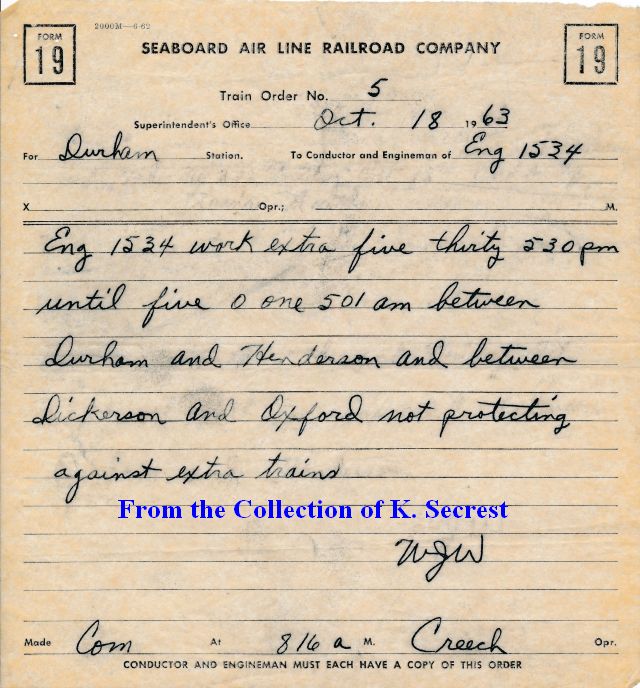 2000M—6-62
FORM 19
SEABOARD AIR LINE RAILROAD COMPANY
FORM 19
Train Order No. 5
Superintendent's Office Oct. 18 1963
For Durham Station. To Conductor and Engineman of Eng 1534
X Opr.; M.
Eng 1534 work extra five thirty 530 pm
until five 0 one 501 am between
Durham and Henderson and between
Dickerson and Oxford not protecting
against extra trains
From the Collection of K. Secrest
WJW
Made Com At 816 a M. Creech Opr.
CONDUCTOR AND ENGINEMAN MUST EACH HAVE A COPY OF THIS ORDER